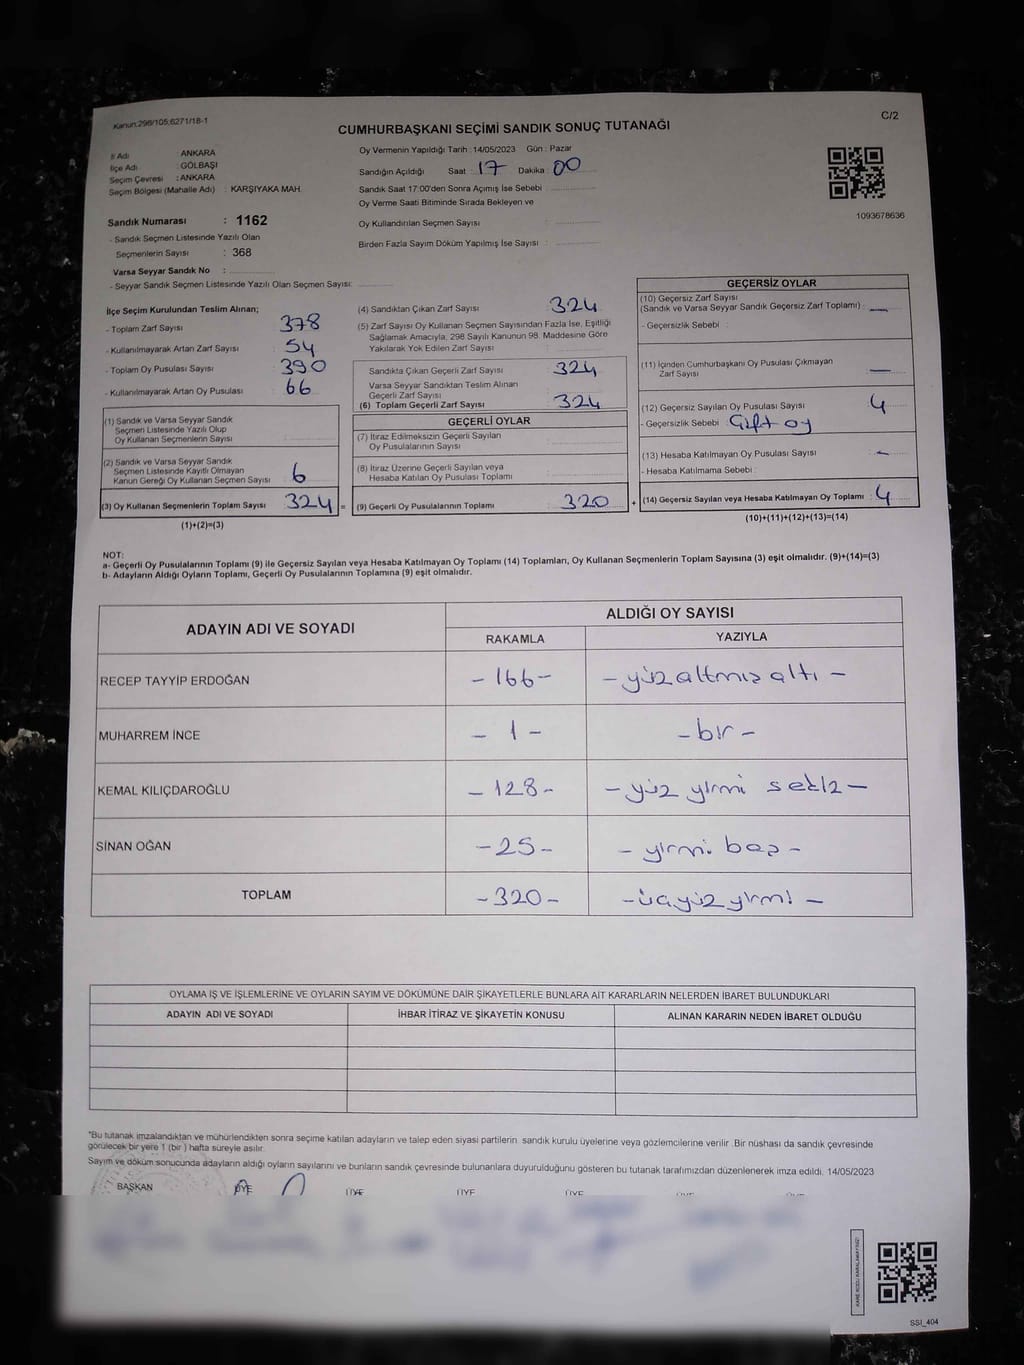 Kanun:298/105;6271/18-1
C/2
CUMHURBAŞKANI SEÇİMİ SANDIK SONUÇ TUTANAĞI
İl Adı : ANKARA
İlçe Adı : GÖLBAŞI
Seçim Çevresi : ANKARA
Seçim Bölgesi (Mahalle Adı) : KARŞIYAKA MAH.
Sandık Numarası : 1162
- Sandık Seçmen Listesinde Yazılı Olan
Seçmenlerin Sayısı : 368
Varsa Seyyar Sandık No :
- Seyyar Sandık Seçmen Listesinde Yazılı Olan Seçmen Sayısı:
Oy Vermenin Yapıldığı Tarih : 14/05/2023 Gün : Pazar
Sandığın Açıldığı Saat : 17 Dakika : 00
Sandık Saat 17:00'den Sonra Açımış İse Sebebi :
Oy Verme Saati Bitiminde Sırada Bekleyen ve
Oy Kullandırılan Seçmen Sayısı :
Birden Fazla Sayım Döküm Yapılmış İse Sayısı :
1093678636
İlçe Seçim Kurulundan Teslim Alınan;
- Toplam Zarf Sayısı : 378
- Kullanılmayarak Artan Zarf Sayısı : 54
- Toplam Oy Pusulası Sayısı : 390
- Kullanılmayarak Artan Oy Pusulası : 66
(1) Sandık ve Varsa Seyyar Sandık
Seçmen Listesinde Yazılı Olup
Oy Kullanan Seçmenlerin Sayısı :
(2) Sandık ve Varsa Seyyar Sandık
Seçmen Listesinde Kayıtlı Olmayan
Kanun Gereği Oy Kullanan Seçmen Sayısı : 6
(3) Oy Kullanan Seçmenlerin Toplam Sayısı : 324 =
(1)+(2)=(3)
(4) Sandıktan Çıkan Zarf Sayısı : 324
(5) Zarf Sayısı Oy Kullanan Seçmen Sayısından Fazla İse, Eşitliği
Sağlamak Amacıyla; 298 Sayılı Kanunun 98. Maddesine Göre
Yakılarak Yok Edilen Zarf Sayısı :
Sandıkta Çıkan Geçerli Zarf Sayısı : 324
Varsa Seyyar Sandıktan Teslim Alınan
Geçerli Zarf Sayısı :
(6) Toplam Geçerli Zarf Sayısı : 324
GEÇERLİ OYLAR
(7) İtiraz Edilmeksizin Geçerli Sayılan
Oy Pusulalarının Sayısı :
(8) İtiraz Üzerine Geçerli Sayılan veya
Hesaba Katılan Oy Pusulası Toplamı :
(9) Geçerli Oy Pusulalarının Toplamı : 320 +
GEÇERSİZ OYLAR
(10) Geçersiz Zarf Sayısı
(Sandık ve Varsa Seyyar Sandık Geçersiz Zarf Toplamı) : —
- Geçersizlik Sebebi :
(11) İçinden Cumhurbaşkanı Oy Pusulası Çıkmayan
Zarf Sayısı : —
(12) Geçersiz Sayılan Oy Pusulası Sayısı : 4
- Geçersizlik Sebebi : Çift oy
(13) Hesaba Katılmayan Oy Pusulası Sayısı : -
- Hesaba Katılmama Sebebi :
(14) Geçersiz Sayılan veya Hesaba Katılmayan Oy Toplamı : 4
(10)+(11)+(12)+(13)=(14)
NOT:
a- Geçerli Oy Pusulalarının Toplamı (9) ile Geçersiz Sayılan veya Hesaba Katılmayan Oy Toplamı (14) Toplamları, Oy Kullanan Seçmenlerin Toplam Sayısına (3) eşit olmalıdır. (9)+(14)=(3)
b- Adayların Aldığı Oyların Toplamı, Geçerli Oy Pusulalarının Toplamına (9) eşit olmalıdır.
ADAYIN ADI VE SOYADI
ALDIĞI OY SAYISI
RAKAMLA YAZIYLA
RECEP TAYYİP ERDOĞAN - 166 - - yüz altmış altı -
MUHARREM İNCE - 1 - - bir -
KEMAL KILIÇDAROĞLU - 128 - - yüz yirmi sekiz -
SİNAN OĞAN - 25 - - yirmi beş -
TOPLAM - 320 - - üçyüz yirmi -
OYLAMA İŞ VE İŞLEMLERİNE VE OYLARIN SAYIM VE DÖKÜMÜNE DAİR ŞİKAYETLERLE BUNLARA AİT KARARLARIN NELERDEN İBARET BULUNDUKLARI
ADAYIN ADI VE SOYADI İHBAR İTİRAZ VE ŞİKAYETİN KONUSU ALINAN KARARIN NEDEN İBARET OLDUĞU
*Bu tutanak imzalandıktan ve mühürlendikten sonra seçime katılan adayların ve talep eden siyasi partilerin sandık kurulu üyelerine veya gözlemcilerine verilir .Bir nüshası da sandık çevresinde
görülecek bir yere 1 (bir ) hafta süreyle asılır.
Sayım ve döküm sonucunda adayların aldığı oyların sayılarını ve bunların sandık çevresinde bulunanlara duyurulduğunu gösteren bu tutanak tarafımızdan düzenlenerek imza edildi. 14/05/2023
BAŞKAN ÜYE ÜYE ÜYE ÜYE
SSI_404